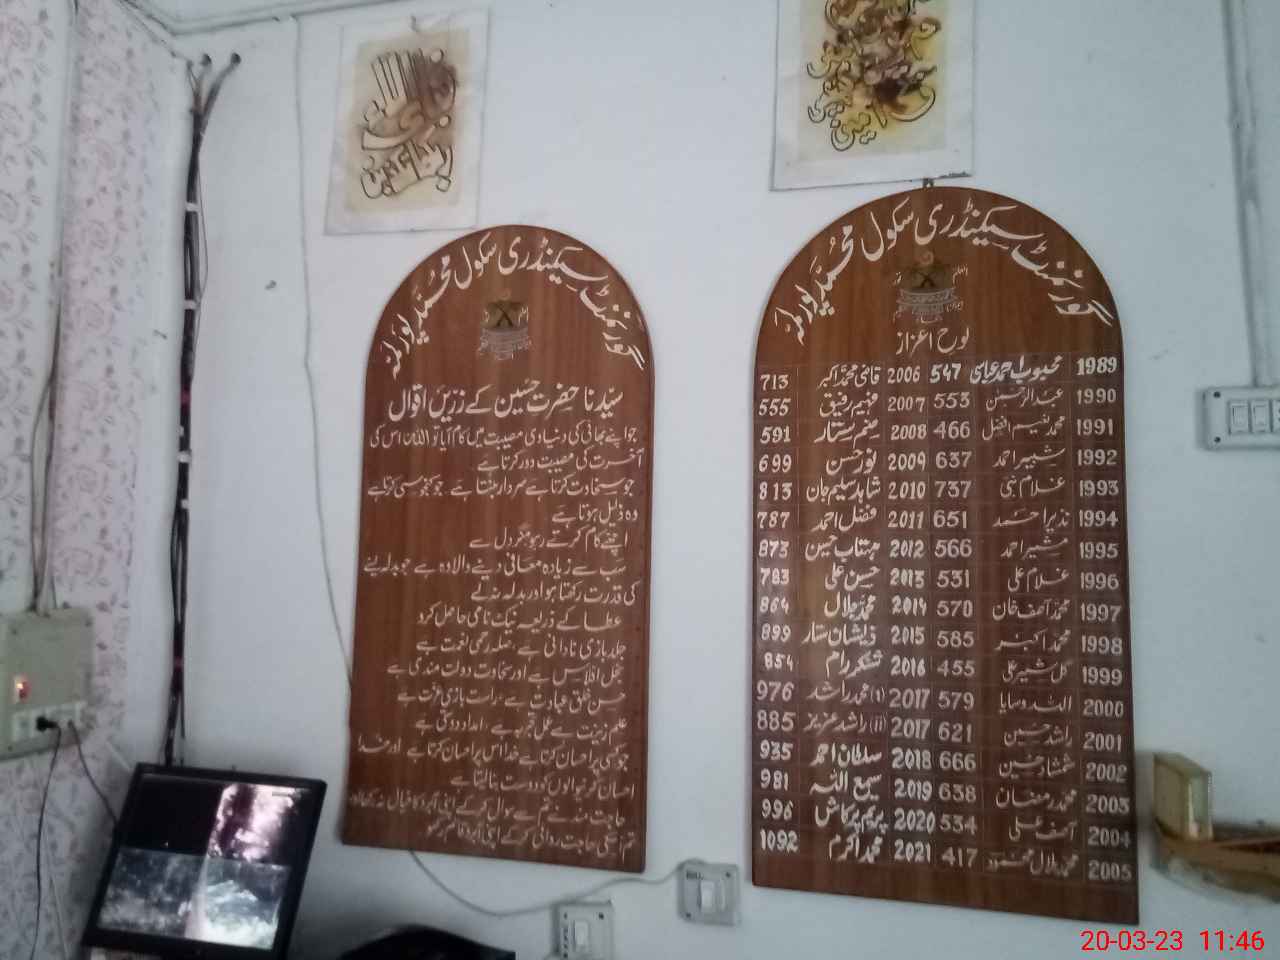 فبای آلاء ربکما تکذبان
گورنمنٹ سیکنڈری سکول محمد پور لمہ
سیّدنا حضرت حسین کے زریں اقوال
جو اپنے بھائی کی دنیاوی مصیبت میں کام آیا تو اللہ اس کی
آخرت کی مصیبت دور کرتا ہے
جو سخاوت کرتا ہے سردار بنتا ہے جو کنجوسی کرتا ہے
وہ ذلیل ہوتا ہے
اچھے کام کرتے رہو مگر دل سے
سب سے زیادہ معافی دینے والا وہ ہے جو بدلہ لینے
کی قدرت رکھتا ہو اور بدلہ نہ لے
عطا کے ذریعہ نیک نامی حاصل کرو
جلد بازی نادانی ہے صلہ رحمی نعمت ہے
بخل افلاس ہے اور سخاوت دولت مندی ہے
حسن خلق عبادت ہے راست بازی عزت ہے
علم زینت ہے عمل تجربہ ہے امداد دوستی ہے
جو کسی پر احسان کرتا ہے خدا اس پر احسان کرتا ہے اور خدا
احسان کرنیوالوں کو دوست بنا لیتا ہے
حاجت مند نے تم سے سوال کر کے اپنی آبرو کا خیال نہ رکھا
تم اسکی حاجت روائی کر کے اپنی آبرو قائم رکھو
گورنمنٹ سیکنڈری سکول محمد پور لمہ
لوح اعزاز
1989 محبوب احمد عباسی 547 2006 قاضی محمد اکبر 713
1990 عبدالرحمن 553 2007 فہیم رفیق 555
1991 محمد نعیم افضل 466 2008 صنم ستار 591
1992 شبیر احمد 637 2009 نور حسن 699
1993 غلام نبی 737 2010 شاہد سلیم جان 813
1994 نذیر احمد 651 2011 فضل احمد 787
1995 مشیر احمد 566 2012 مہتاب حسین 873
1996 غلام علی 531 2013 حسن علی 783
1997 محمد آصف خان 570 2014 محمد بلال 864
1998 محمد اکبر 585 2015 ذیشان ستار 899
1999 گل شیر علی 455 2016 شنکر رام 854
2000 اللہ وسایا 579 2017 (i) محمد راشد 976
2001 راشد حسین 621 2017 (ii) راشد عزیز 885
2002 شمشاد حسین 666 2018 سلطان احمد 935
2003 محمد رمضان 638 2019 سمیع اللہ 981
2004 آصف علی 534 2020 پریم پرکاش 996
2005 محمد بلال محمود 417 2021 محمد اکرم 1092
20-03-23 11:46